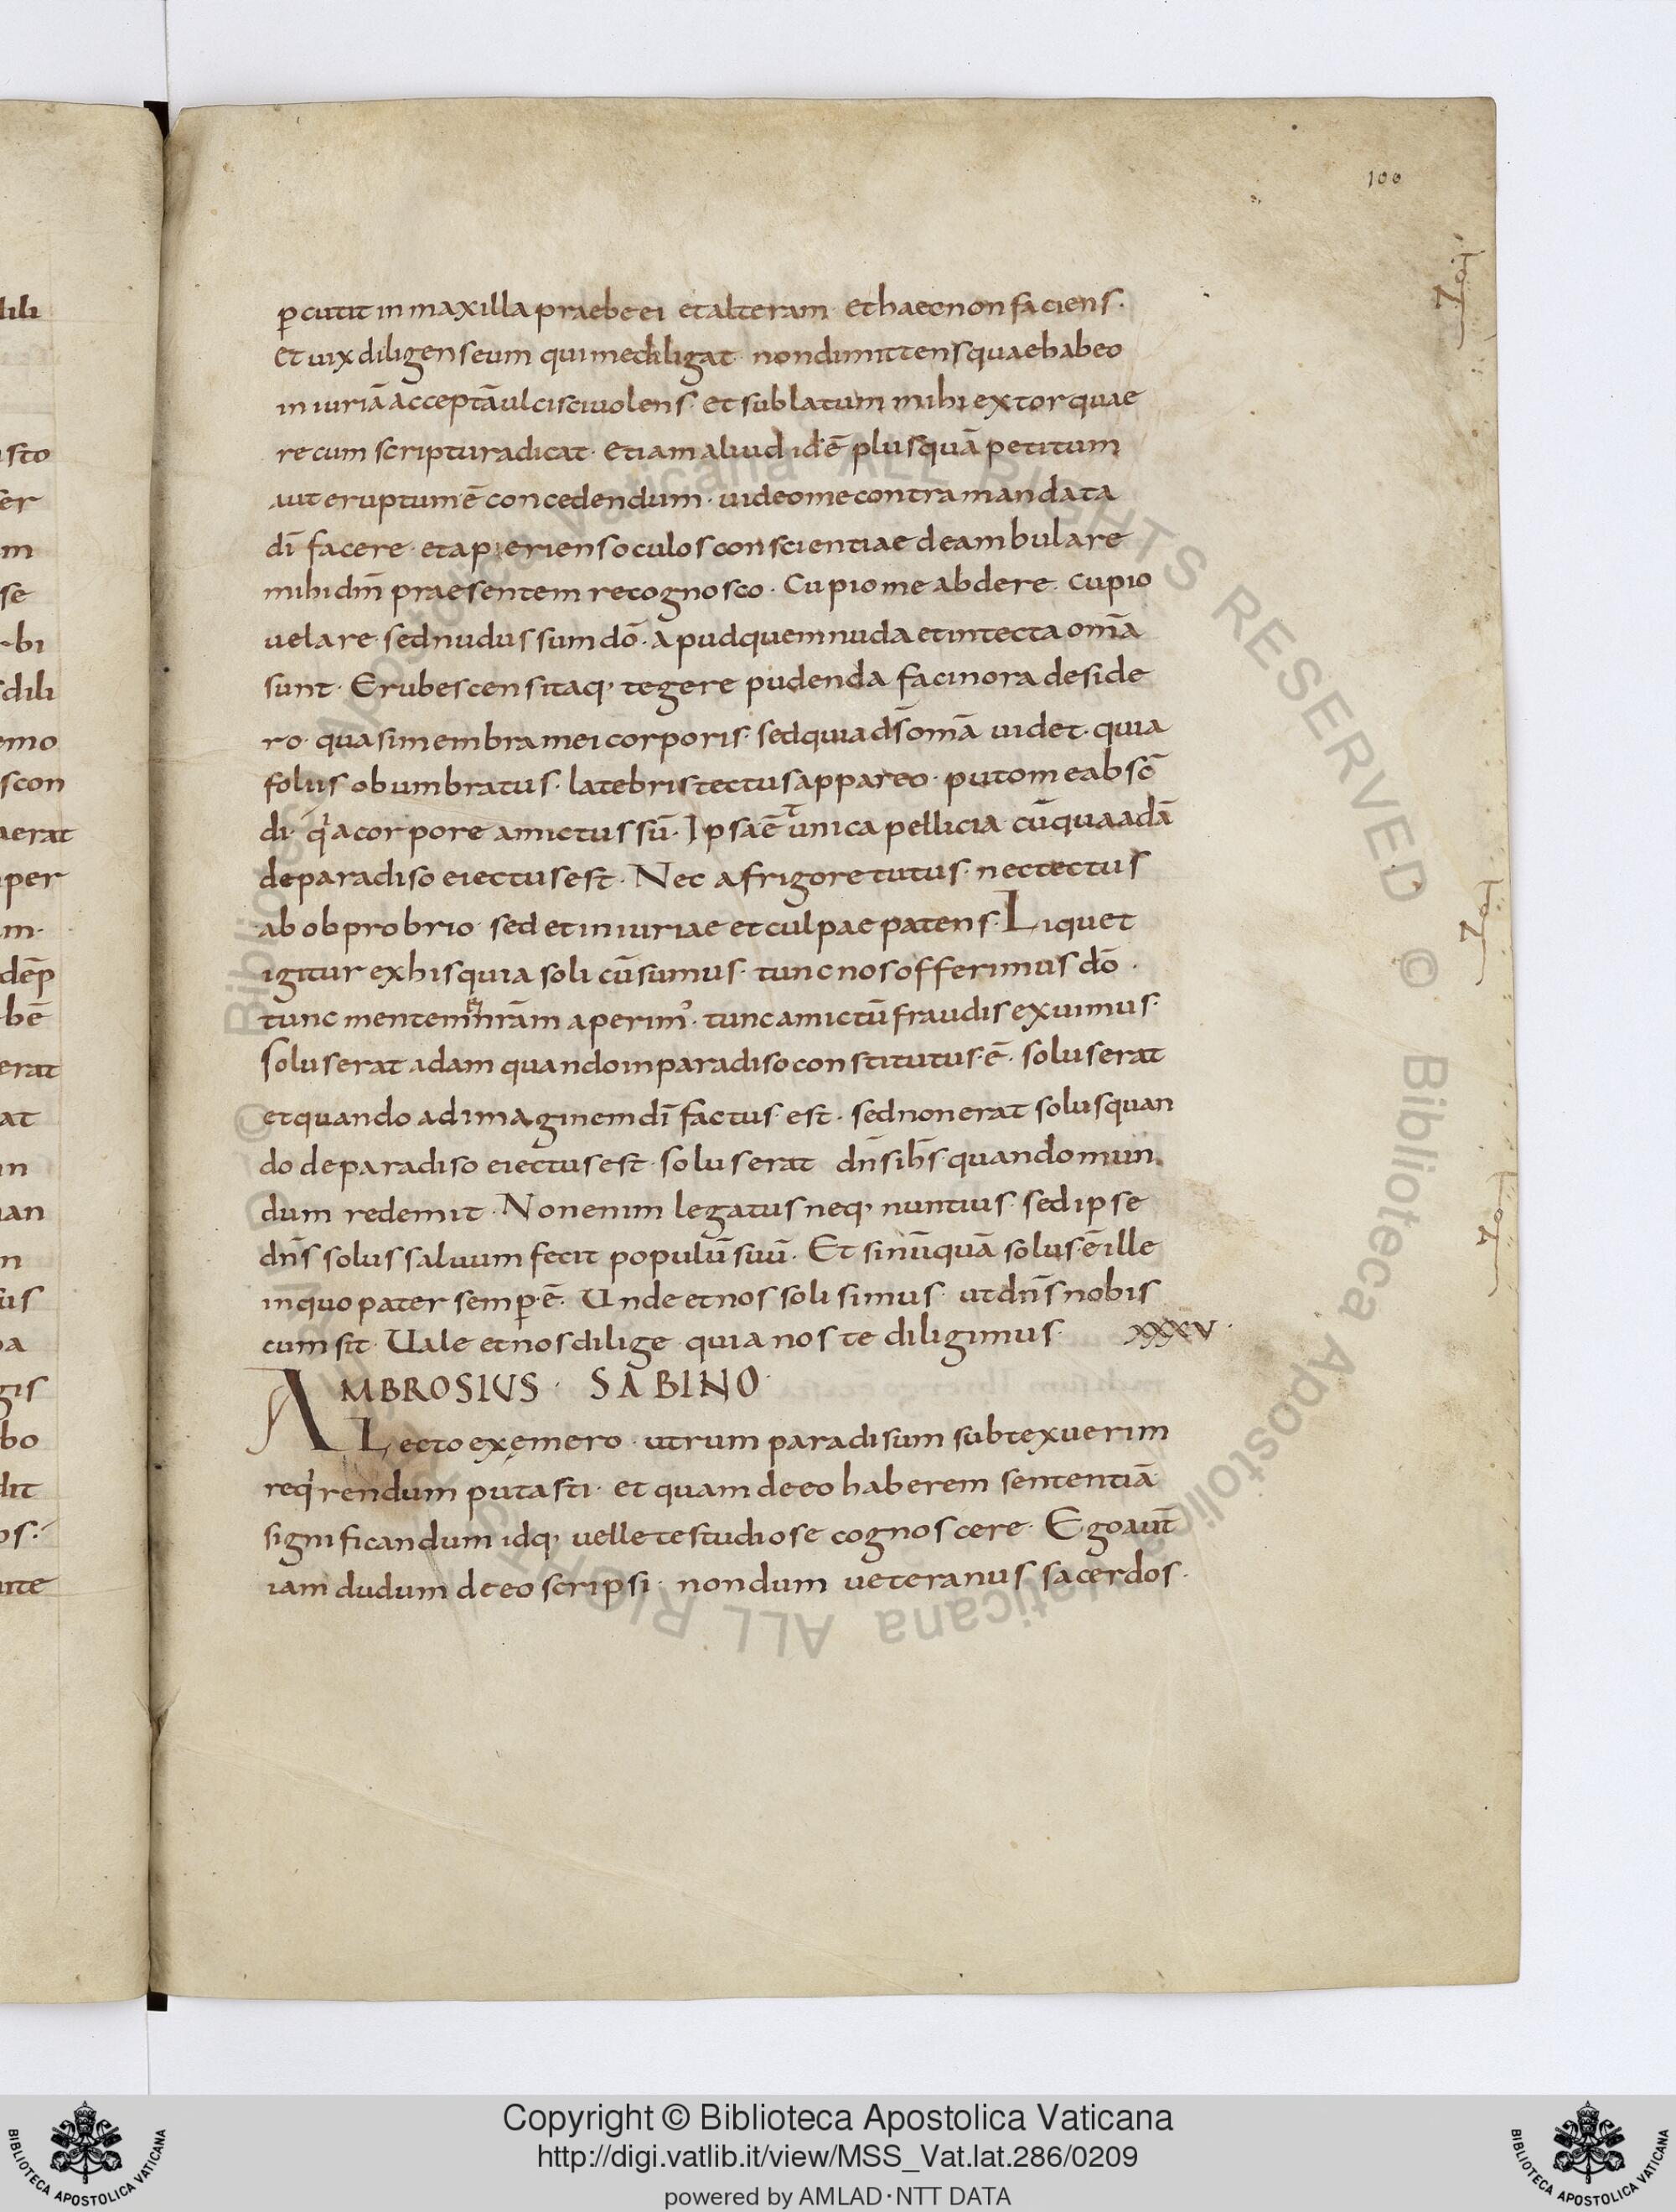 100
ꝑcutit in maxilla praebe ei et alteram· et haec non faciens·
et uix diligens eum qui me diligat· non dimittens quae habeo
iniuriā acceptā ulcisci uolens· et sublatum mihi extorquae
re cum scriptura dicat· etiam aliud idē plus quā petitum
aut eruptum ē concedendum· uideo me contra mandata
dī facere· et aperiens oculos conscientiae deambulare
mihi dn̄m praesentem recognosco· Cupio me abdere· cupio
uelare· sed nudus sum dō· apud quem nuda et intecta om̄a
sunt· Erubescens itaq· tegere pudenda facinora deside
ro· quasi membra mei corporis· sed quia ds̄ om̄a uidet· quia
foliis obumbratus· latebris tectus appareo· puto me absc̄
di· qⁱa corpore amictus sū· Ipsa ē tunica pellicia cū qua adā
de paradiso eiectus est· Nec a frigore tutus· nec tectus
ab obprobrio· sed et iniuriae et culpae patens· Liquet
igitur ex his quia soli cū sumus· tunc nos offerimus dō·
tunc mentem nrām aperim᾽· tunc amictū fraudis exuimus·
Solus erat adam quando in paradiso constitutus ē· solus erat
et quando ad imaginem dī factus est· sed non erat solus quan
do de paradiso eiectus est· solus erat dn̄s ih̄s quando mun
dum redemit· Non enim legatus neq· nuntius· sed ipse
dn̄s solus saluum fecit populū suū· Et si nūquā solus ē ille
in quo pater semꝑ ē· Unde et nos soli simus· ut dn̄s nobis
cum sit· Uale et nos dilige· quia nos te diligimus· XXXV·
AMBROSIUS· SABINO·
Lecto exęmero· utrum paradisum subtexuerim
reqⁱrendum putasti· et quam de eo haberem sententiā
significandum idq· uelle te studiose cognoscere· Ego aut̄
iam dudum de eo scripsi· nondum ueteranus sacerdos·
Copyright © Biblioteca Apostolica Vaticana
http://digi.vatlib.it/view/MSS_Vat.lat.286/0209
powered by AMLAD·NTT DATA